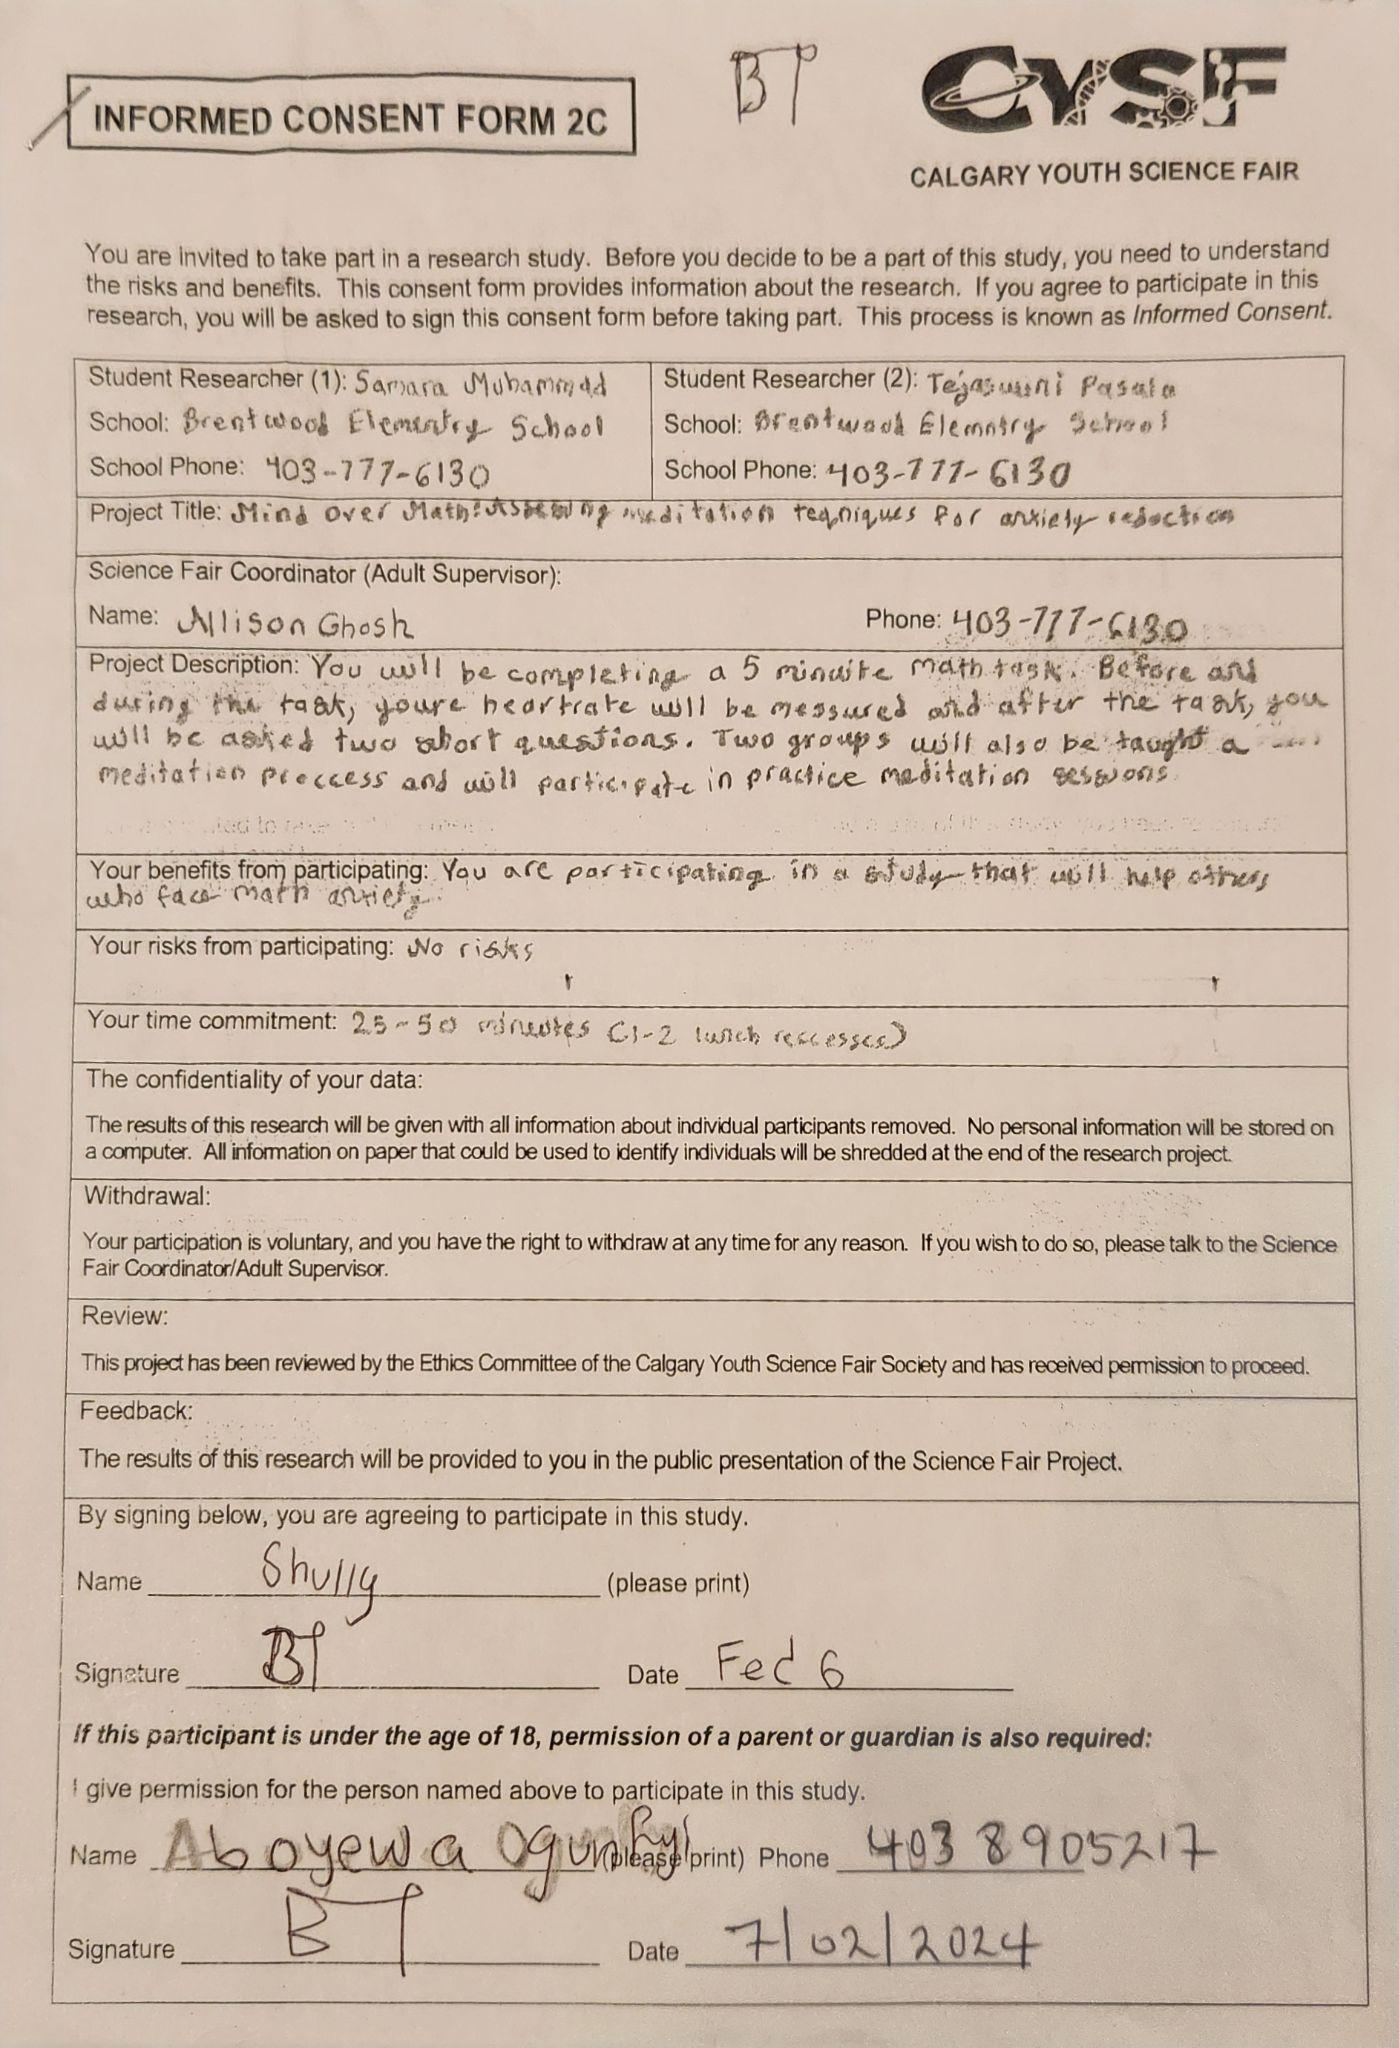 INFORMED CONSENT FORM 2C
BT
CYSF
CALGARY YOUTH SCIENCE FAIR
You are invited to take part in a research study. Before you decide to be a part of this study, you need to understand
the risks and benefits. This consent form provides information about the research. If you agree to participate in this
research, you will be asked to sign this consent form before taking part. This process is known as Informed Consent.
Student Researcher (1): Samara Muhammad
School: Brentwood Elementry School
School Phone: 403-777-6130
Student Researcher (2): Tejaswini Pasala
School: Brentwood Elemntry School
School Phone: 403-777-6130
Project Title: Mind Over Math: Assessing meditation teqniques for anxiety reduction
Science Fair Coordinator (Adult Supervisor):
Name: Allison Ghosh Phone: 403-777-6130
Project Description: You will be completing a 5 minuite math task. Before and
during the task, youre heartrate will be messured and after the task, you
will be asked two short questions. Two groups will also be taught a
meditation proccess and will participate in practice meditation sessions.
Your benefits from participating: You are participating in a study that will help others
who face math anxiety.
Your risks from participating: No risks
Your time commitment: 25-50 minutes (1-2 lunch reccesses)
The confidentiality of your data:
The results of this research will be given with all information about individual participants removed. No personal information will be stored on
a computer. All information on paper that could be used to identify individuals will be shredded at the end of the research project.
Withdrawal:
Your participation is voluntary, and you have the right to withdraw at any time for any reason. If you wish to do so, please talk to the Science
Fair Coordinator/Adult Supervisor.
Review:
This project has been reviewed by the Ethics Committee of the Calgary Youth Science Fair Society and has received permission to proceed.
Feedback:
The results of this research will be provided to you in the public presentation of the Science Fair Project.
By signing below, you are agreeing to participate in this study.
Name Shully (please print)
Signature BT Date Fed 6
If this participant is under the age of 18, permission of a parent or guardian is also required:
I give permission for the person named above to participate in this study.
Name Aboyewa (please print) Phone 403 8905217
Signature BT Date 7/02/2024